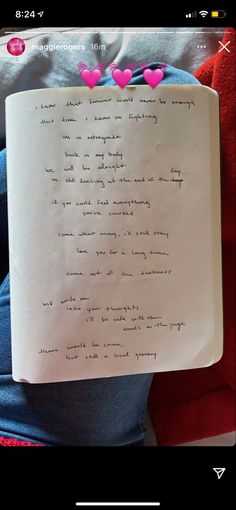 8:24
maggierogers 16m
i know that forever would never be enough
this time i know im fighting
im in retrograde
back in my body
we will be alright
day
im still dancing at the end of the
if you could feel everything
you've caused
come what may, i'll still stay
love you for a long time
come out of the darkness
and write me
into your thoughts
i'll be safe with them
words on the page
there would be crime,
but still a local grocery